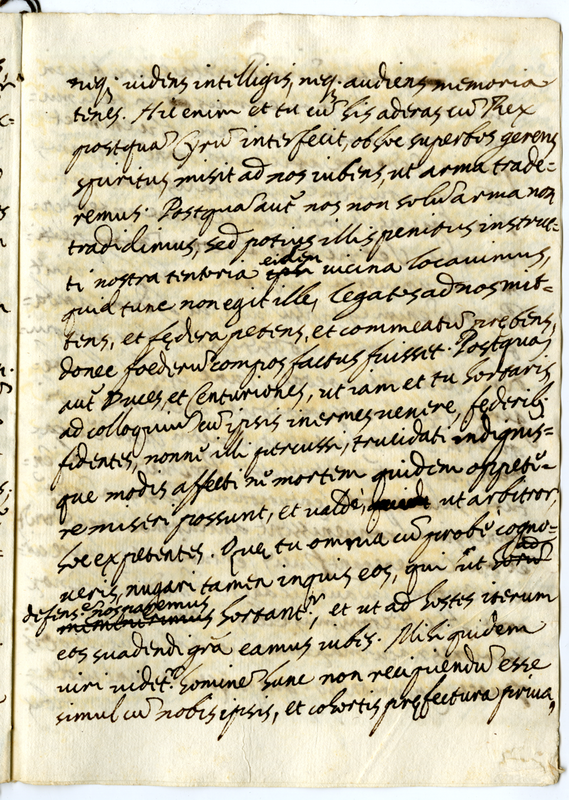 neq; videns intelligis, neq; audiens memoria
tenes. Hic enim et tu cũ his aderas cũ Rex
postquã Cyrũ interfecit, ob hoc superbos gerens
spiritus misit ad nos iubens, ut arma trade=
remus. Postquã aut̃ nos non solũ arma non
tradidimus, sed potius illis penitus instruc=
ti nostra tentoria eidem vicina locavimus,
quid tunc non egit ille, legatos ad nos mit=
tens, et fędera petens, et commeatũ prębens,
donec foederũ compos factus fuisset. Postquã
aut̃ Duces, et Centuriones, ut iam et tu hortaris
ad colloquium cũ ipsis inermes venere, fęderib;
fidentes, nonne illi percussi, trucidati indignis=
que modis affecti ne mortem quidem oppete=
re miseri possunt, et valde, ut arbitror,
hoc expetentes. Quę tu omnia cũ probe cogno=
veris, nugari tamen inquis eos, qui ut ad
defensionẽ nos paremus hortantr̃, et ut ad hostes iterum
eos suadendi grã eamus iubes. Mihi quidem
viri videtr̃ hominẽ hunc non recipiendũ esse
simul cũ nobis ipsis, et cohortis pręfectura priva,